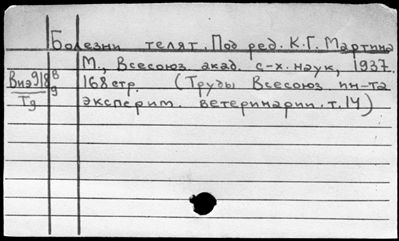 Болезни телят. Под ред. К.Г. Мартина
М., Всесоюз. акад. с-х. наук, 1937.
Виэ918 8/9 168 стр. (Труды Всесоюз. ин-та
Тд эксперим. ветеринарии. т. 14)